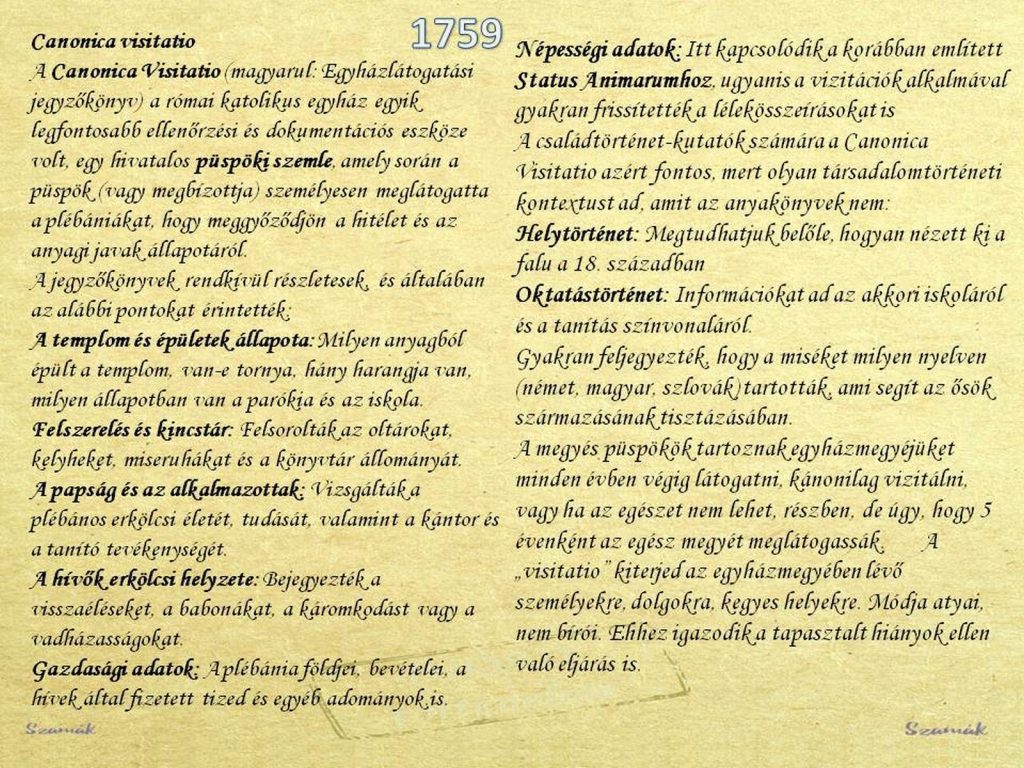 1759
Canonica visitatio
A Canonica Visitatio (magyarul: Egyházlátogatási
jegyzőkönyv) a római katolikus egyház egyik
legfontosabb ellenőrzési és dokumentációs eszköze
volt, egy hivatalos püspöki szemle, amely során a
püspök (vagy megbízottja) személyesen meglátogatta
a plébániákat, hogy meggyőződjön a hitélet és az
anyagi javak állapotáról.
A jegyzőkönyvek rendkívül részletesek, és általában
az alábbi pontokat érintették:
A templom és épületek állapota: Milyen anyagból
épült a templom, van-e tornya, hány harangja van,
milyen állapotban van a parókia és az iskola.
Felszerelés és kincstár: Felsorolták az oltárokat,
kelyheket, miseruhákat és a könyvtár állományát.
A papság és az alkalmazottak: Vizsgálták a
plébános erkölcsi életét, tudását, valamint a kántor és
a tanító tevékenységét.
A hívők erkölcsi helyzete: Bejegyezték a
visszaéléseket, a babonákat, a káromkodást vagy a
vadházasságokat.
Gazdasági adatok: A plébánia földjei, bevételei, a
hívek által fizetett tized és egyéb adományok is.
Szamák
Népességi adatok: Itt kapcsolódik a korábban említett
Status Animarumhoz, ugyanis a vizitációk alkalmával
gyakran frissítették a lélekösszeírásokat is
A családtörténet-kutatók számára a Canonica
Visitatio azért fontos, mert olyan társadalomtörténeti
kontextust ad, amit az anyakönyvek nem:
Helytörténet: Megtudhatjuk belőle, hogyan nézett ki a
falu a 18. században
Oktatástörténet: Információkat ad az akkori iskoláról
és a tanítás színvonaláról.
Gyakran feljegyezték, hogy a miséket milyen nyelven
(német, magyar, szlovák) tartották, ami segít az ősök
származásának tisztázásában.
A megyés püspökök tartoznak egyházmegyéjüket
minden évben végig látogatni, kánonilag vizitálni,
vagy ha az egészet nem lehet, részben, de úgy, hogy 5
évenként az egész megyét meglátogassák. A
„visitatio” kiterjed az egyházmegyében lévő
személyekre, dolgokra, kegyes helyekre. Módja atyai,
nem bírói. Ehhez igazodik a tapasztalt hiányok ellen
való eljárás is.
Szamák